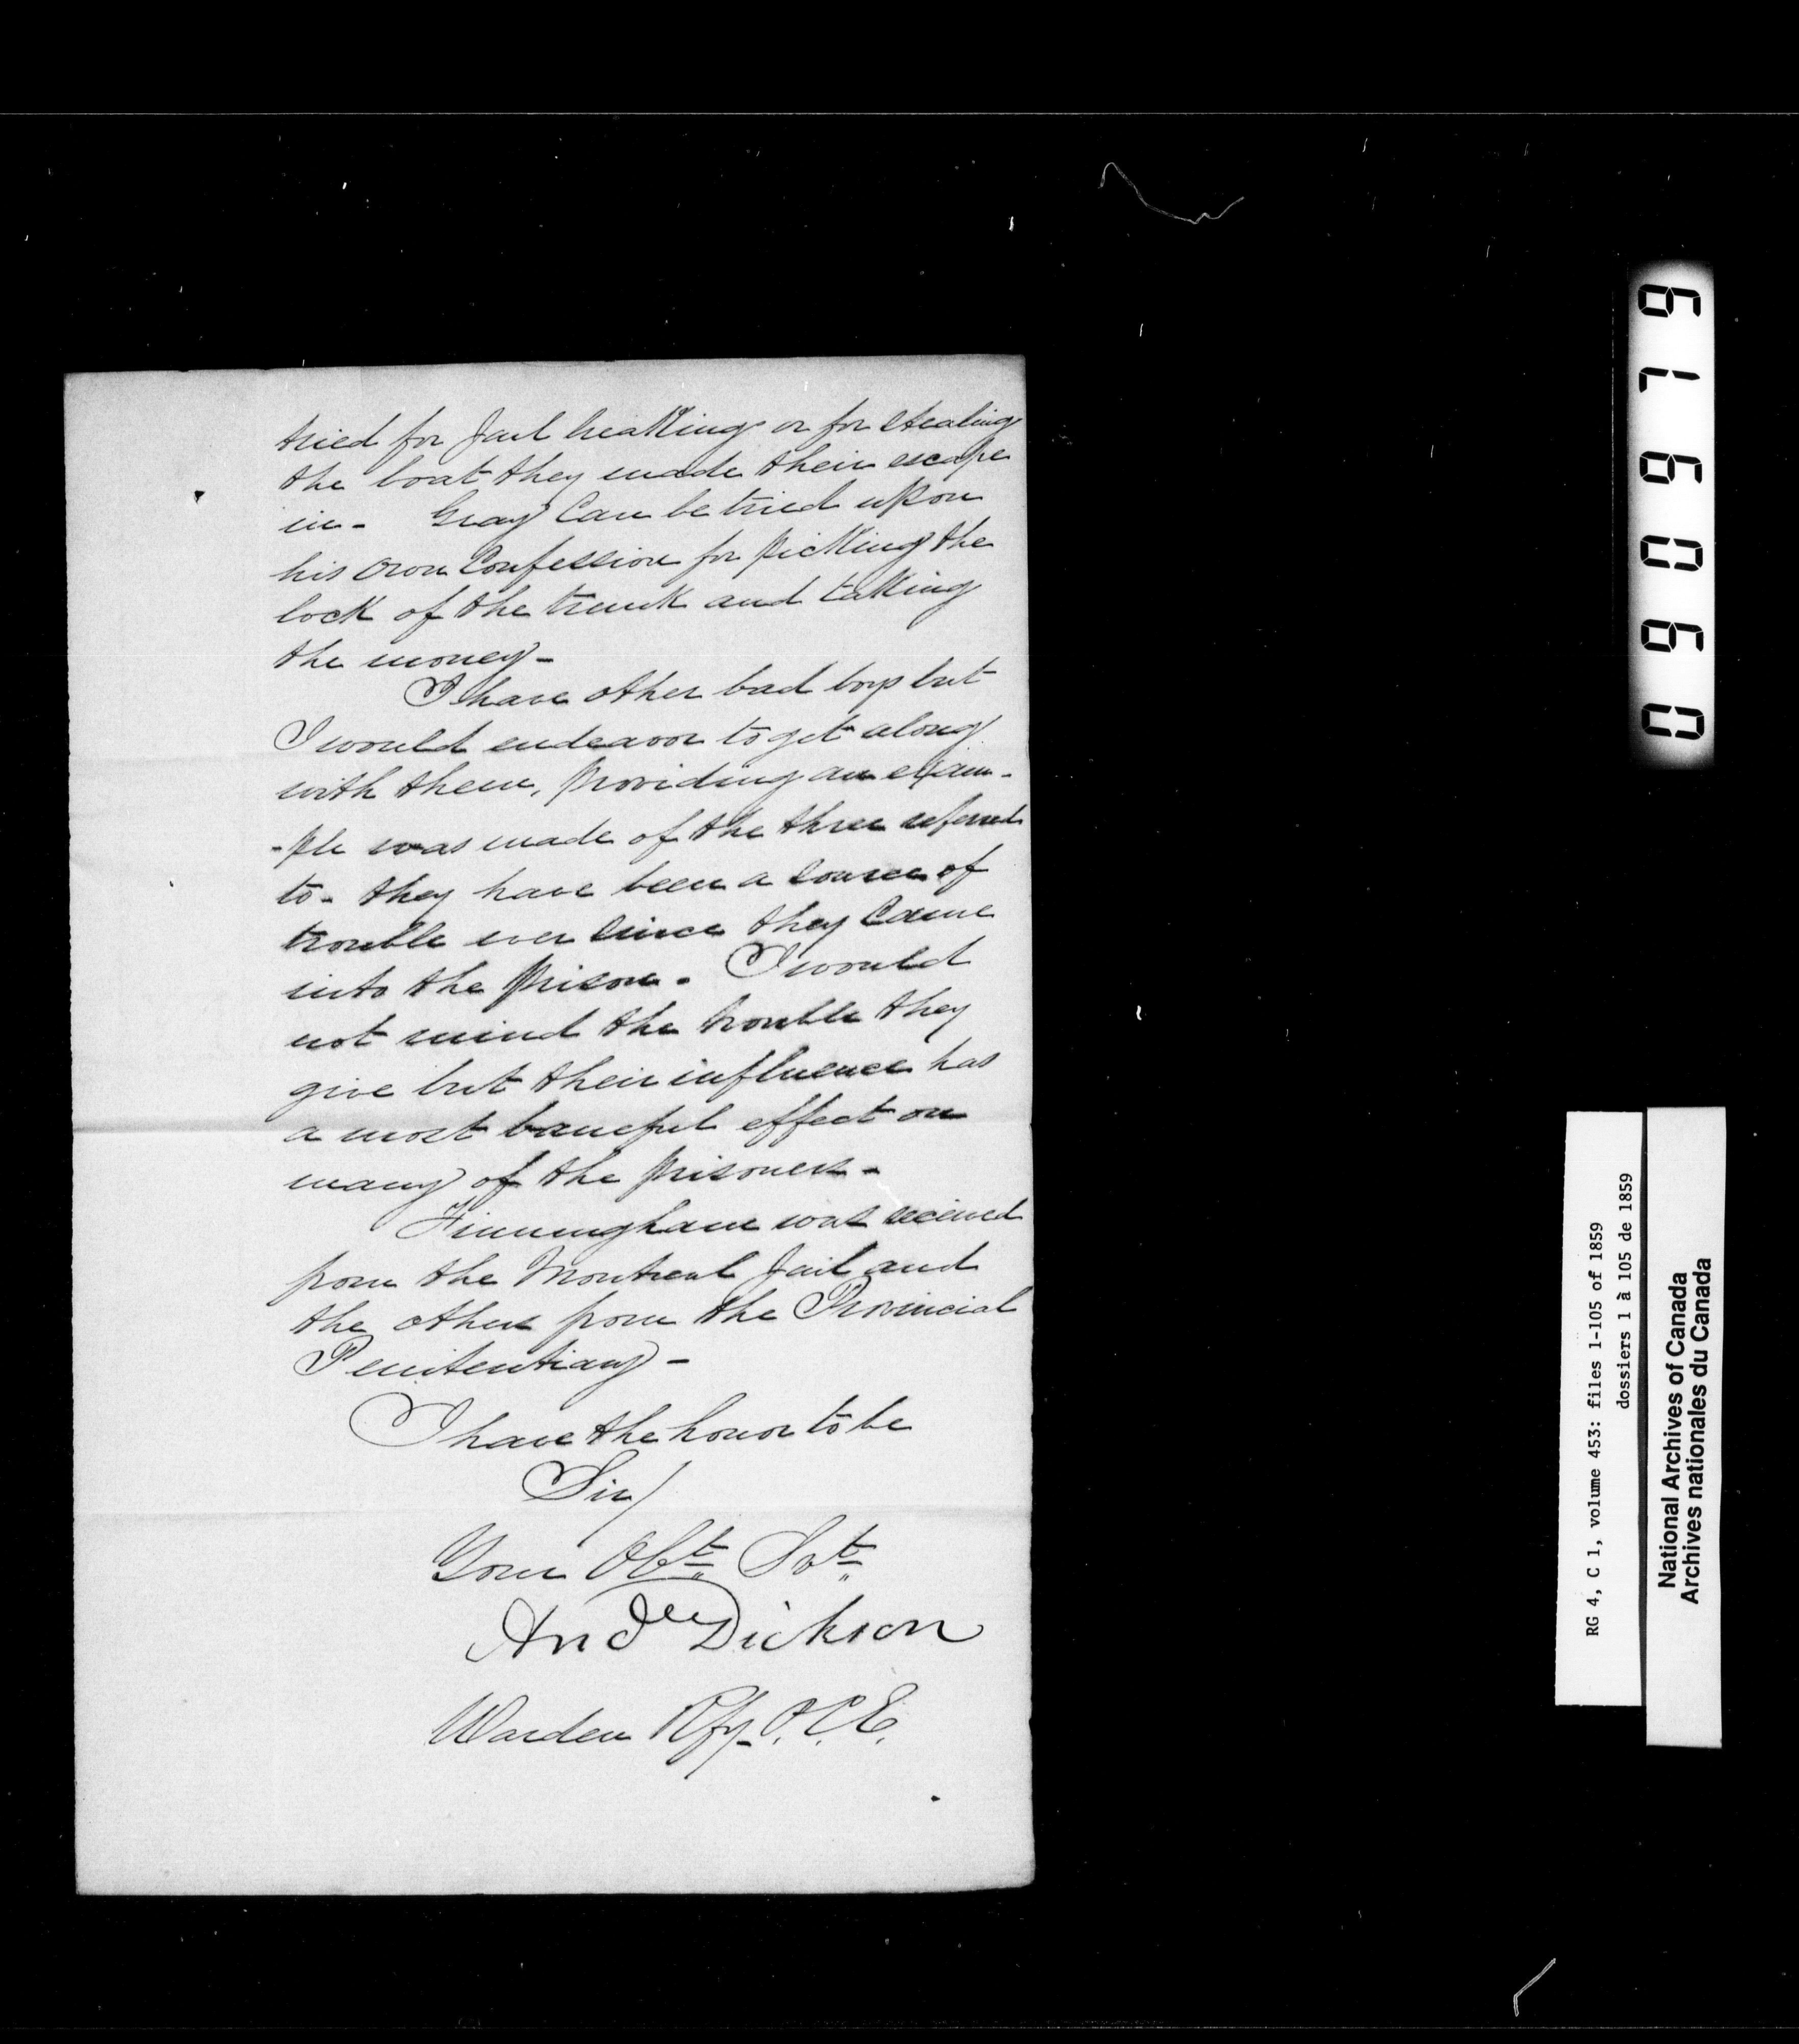 tried for Jail breaking or for stealing
the boat they made their escape
in - Gray Can be tried upon
his own Confession for picking the
lock of the trunk and taking
the money -
I have other bad boys but
I would endeavor to get along
with them, providing an exam-
-ple was made of the three referred
to - they have been a source of
trouble ever since they Came
into the prison - I would
not mind the trouble they
give but their influence has
a most baneful effect on
many of the prisoners -
Finningham was received
from the Montreal Jail and
the others from the Provincial
Penitentiary -
I have the honor to be
Sir/
Your Obt. Svt.
Andw Dickson
Warden Rfy. P. C. E.
097909
RG 4, C 1, volume 453: files 1-105 of 1859
dossiers 1 à 105 de 1859
National Archives of Canada
Archives nationales du Canada